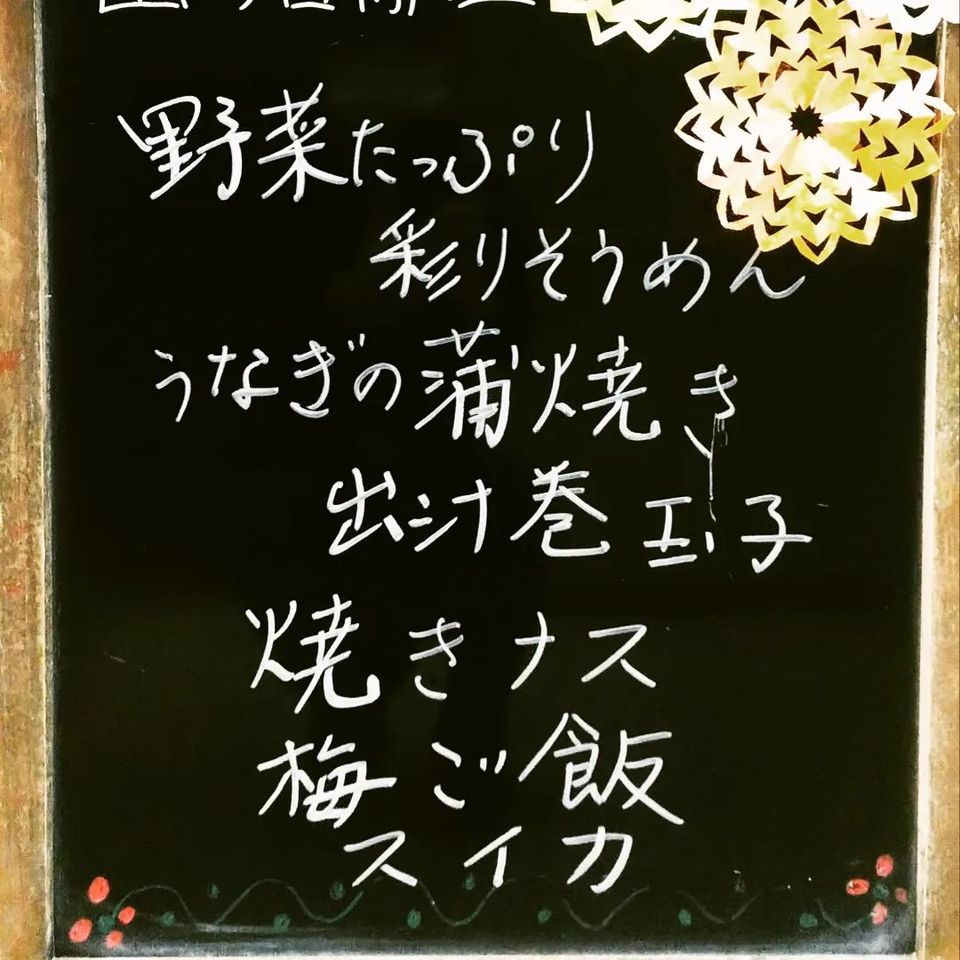 野菜たっぷり
彩りそうめん
うなぎの蒲焼き
出汁巻玉子
焼きナス
梅ご飯
スイカ